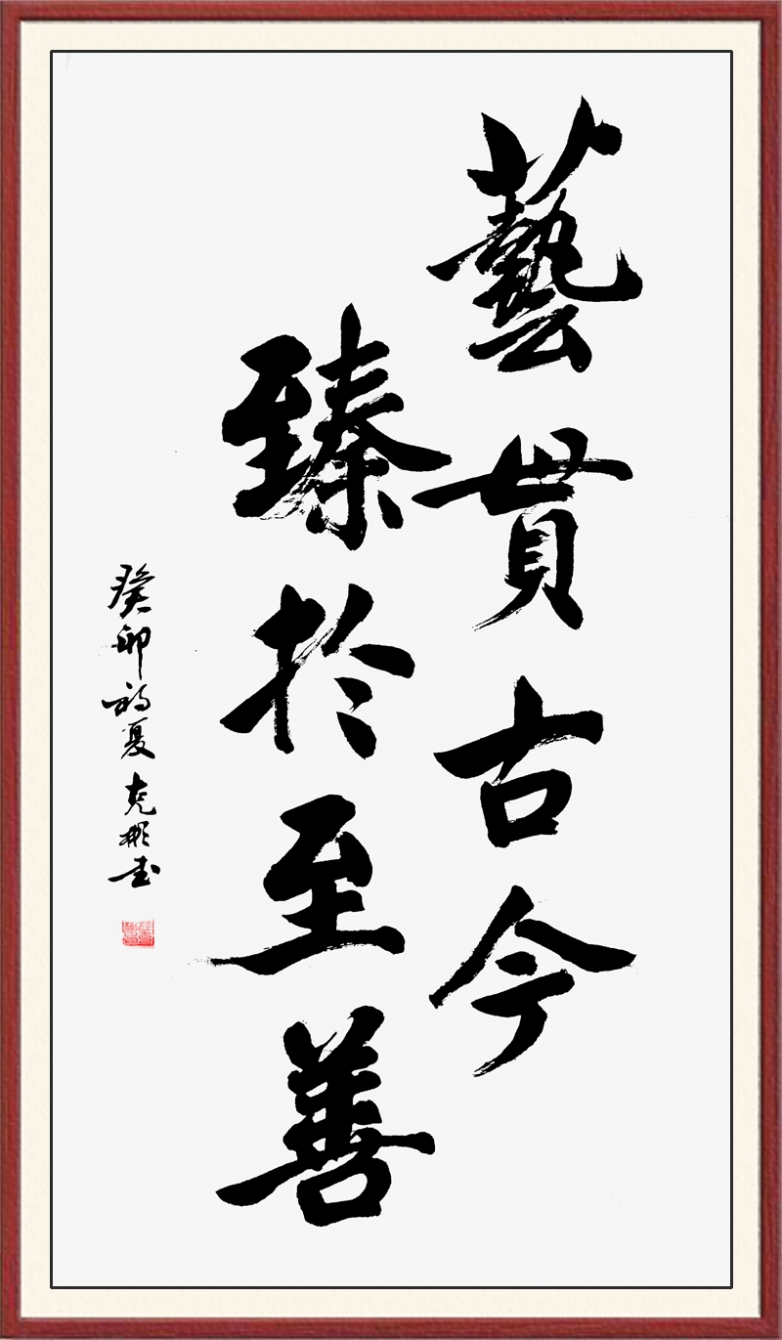 藝貫古今
臻於至善
癸卯初夏克彬书